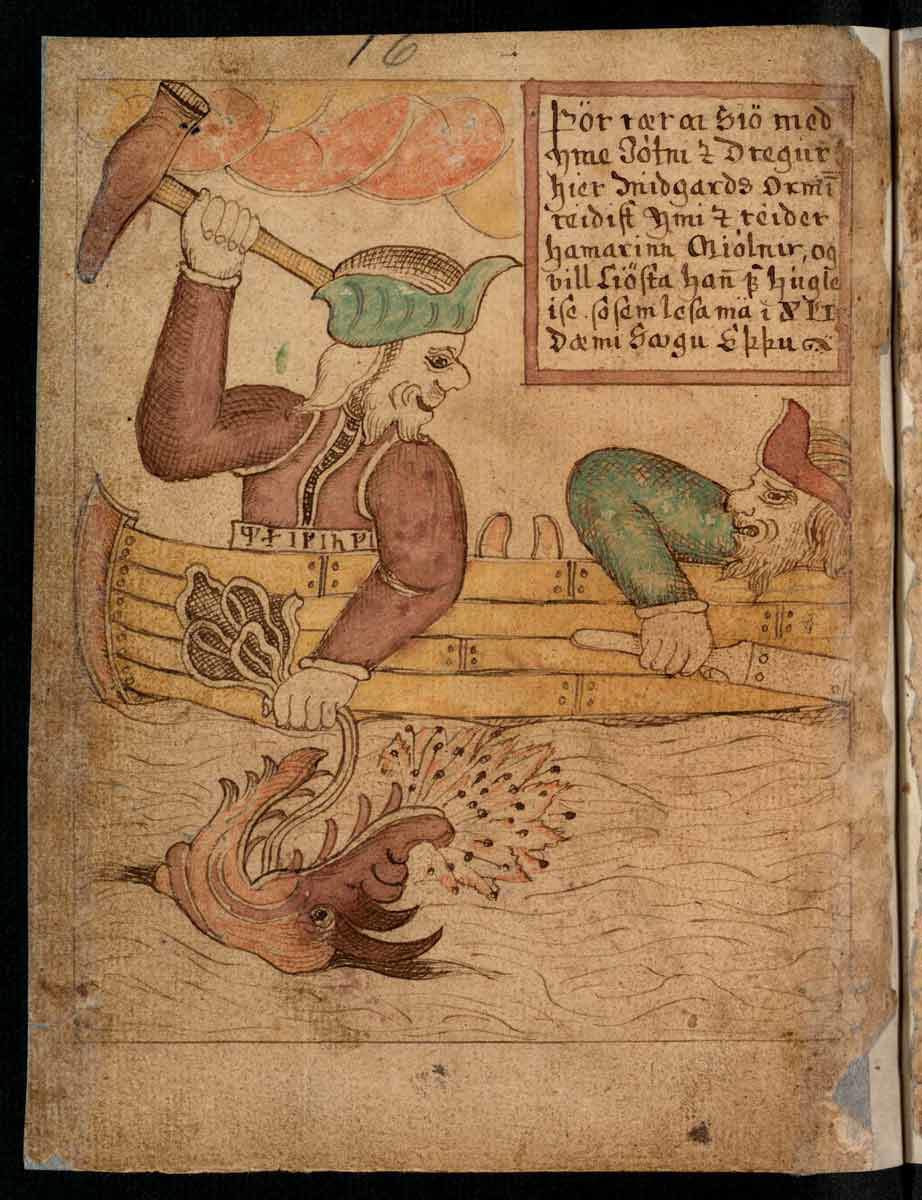 16
Þör rær a Siö med
Yme Jötni ⁊ Dregur
hier Midgards Ormī
reidist Ymi ⁊ reider
hamarinn Miölner, og
vill Liösta han̄
ise. so sem lesa mä i XLI
Dæmi Søgu Eþþu